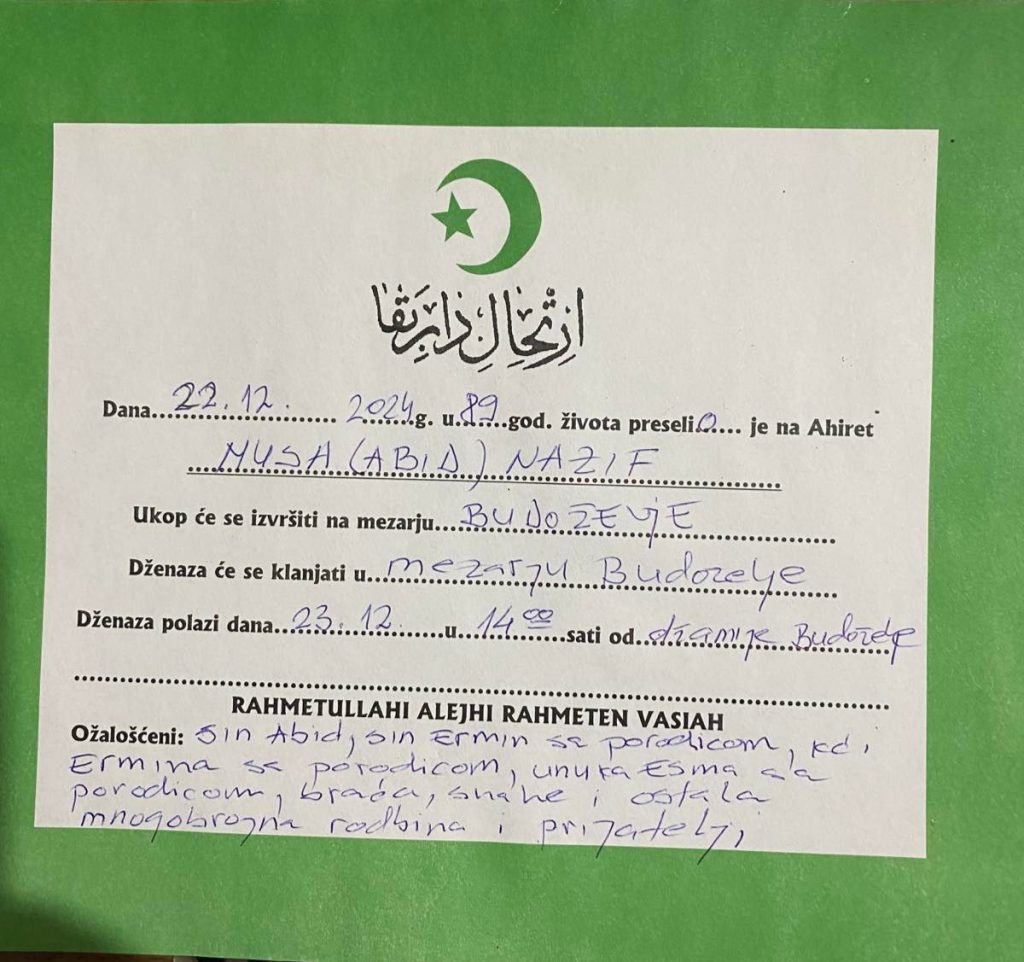 ارتحال دار بقا
Dana 22.12. 2024 g. u 89 god. života preseliO je na Ahiret
MUSA (ABID) NAZIF
Ukop će se izvršiti na mezarju BUDOŽEVJE
Dženaza će se klanjati u mezarju Budozelje
Dženaza polazi dana 23.12. u 14 00 sati od džamije Budoželje
RAHMETULLAHI ALEJHI RAHMETEN VASIAH
Ožalošćeni: Sin Abid, sin Ermin sa porodicom, kći
Ermina sa porodicom, unuka Esma sa
porodicom, braća, snahe i ostala
mnogobrojna rodbina i prijatelji